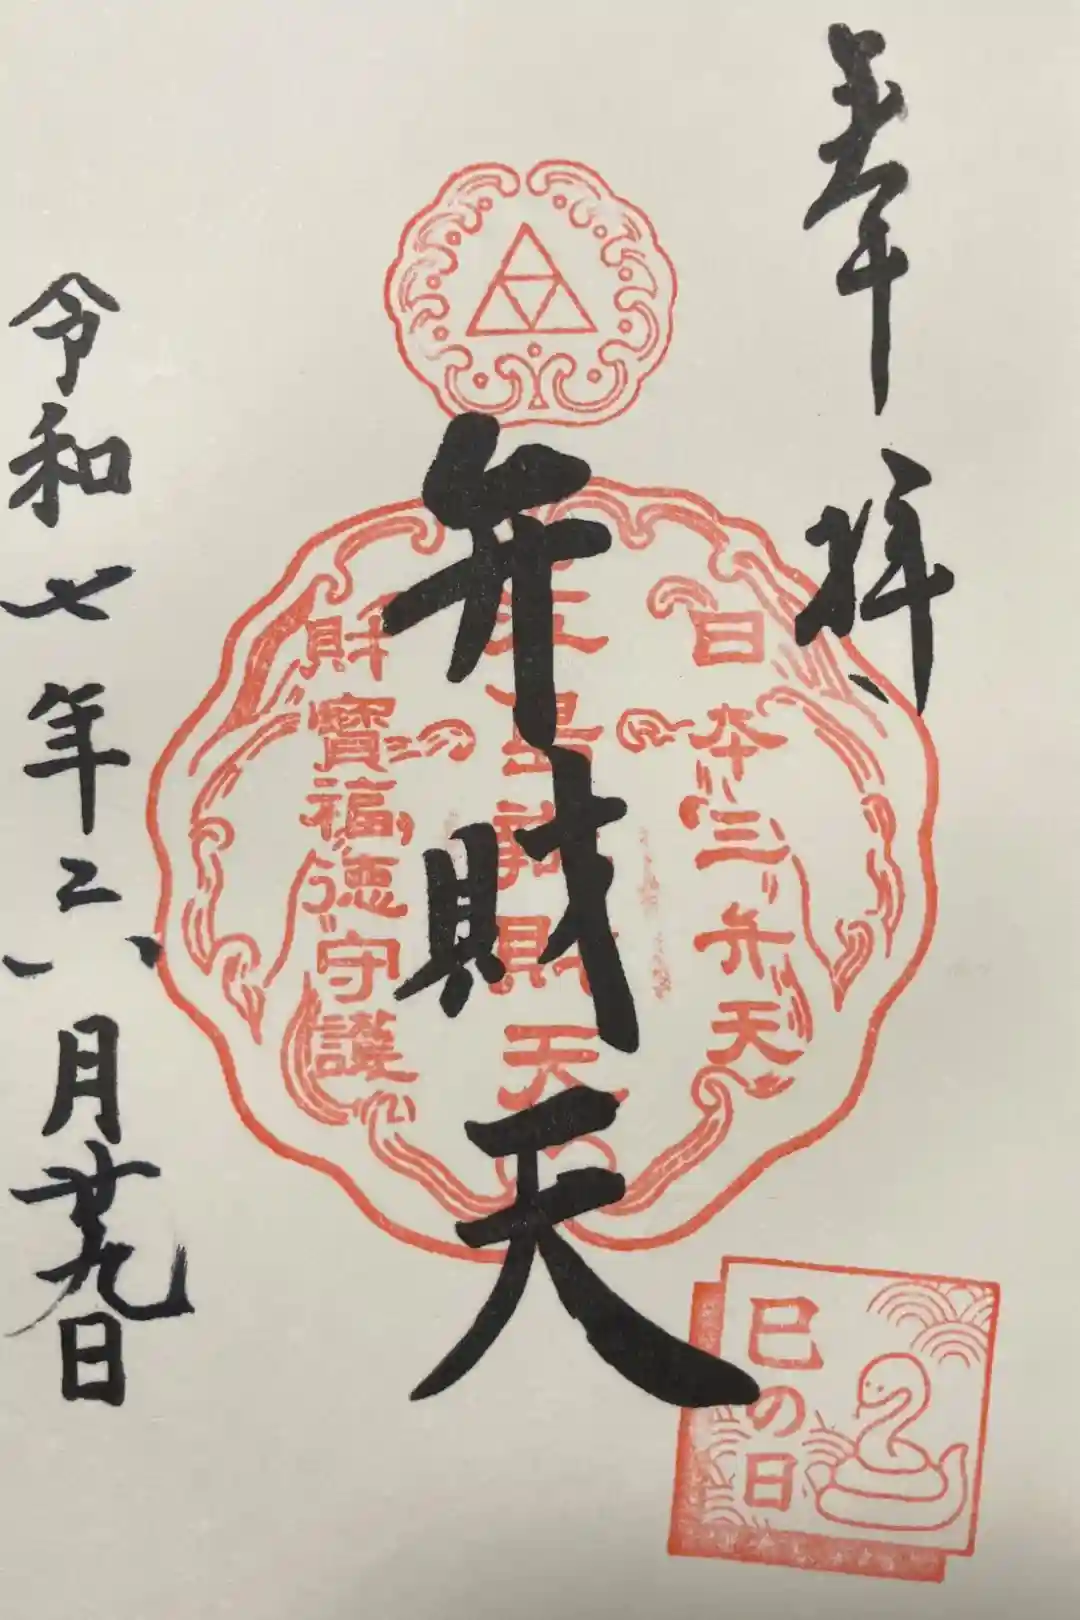 奉拝
日本三弁天
弁財天
財寶福徳守護
令和七年二八月廿九日
巳の日